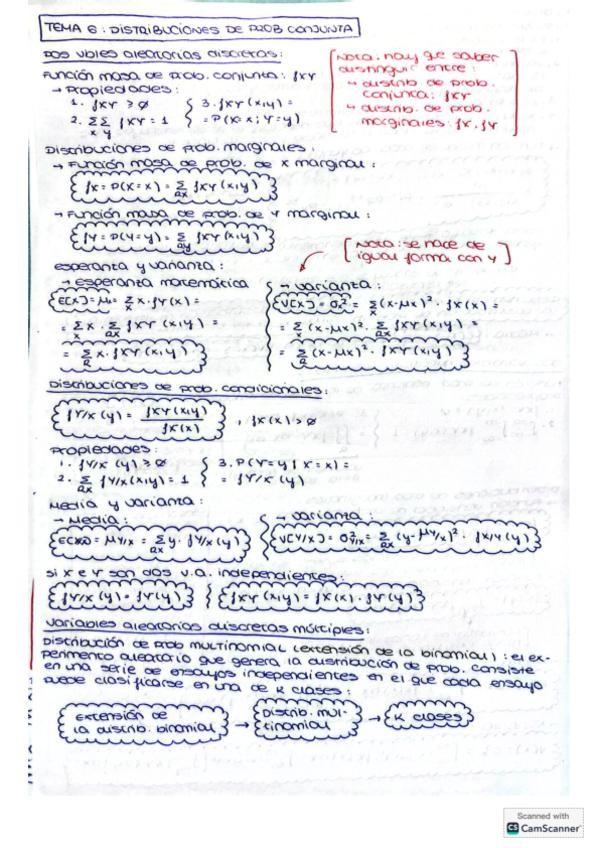 TEMA 6: DISTRIBUCIONES DE PROB CONJUNTA
DOS vbles aleatorias discretas:
Función masa de prob. conjunta: fxy
→ Propiedades:
1. fxy ≥ 0
2. ΣΣ fxy = 1
x y
3. fxy(x,y) =
= P(X=x; Y=y)
[Nota. hay que saber
distinguir entre:
↳ distrib de prob.
conjunta: fxy
↳ distrib. de prob.
marginales: fx, fy]
Distribuciones de prob. marginales:
→ Función masa de prob. de x marginal:
fx = P(X=x) = Σ fxy(x,y)
Rx
→ Función masa de prob. de y marginal:
fy = P(Y=y) = Σ fxy(x,y)
Ry
[Nota: se hace de
igual forma con y]
esperanza y varianza:
→ esperanza matemática
E[X] = μx = Σ x · fx(x) =
x
= Σ x · Σ fxy(x,y) =
x Rx
= Σ x · fxy(x,y)
R
→ varianza:
V[X] = σx² = Σ (x-μx)² · fx(x) =
x
= Σ (x-μx)² · Σ fxy(x,y) =
x Rx
= Σ (x-μx)² · fxy(x,y)
R
Distribuciones de prob. condicionales:
fy/x (y) = fxy(x,y)
fx(x)
, fx(x) > 0
Propiedades:
1. fy/x (y) ≥ 0
2. Σ fy/x(x,y) = 1
Rx
3. P(Y=y | X=x) =
= fy/x (y)
Media y varianza:
→ Media:
= μy/x = Σ y · fy/x (y)
Rx
→ varianza:
V(Y/x) = σ²y/x = Σ (y-μy/x)² · fx/y (y)
Rx
si x e y son dos v.a. independientes:
fy/x (y) = fy(y)
fxy(x,y) = fx(x) · fy(y)
variables aleatorias discretas múltiples:
Distribución de prob multinomial (extensión de la binomial): el ex-
perimento aleatorio que genera la distribución de prob. consiste
en una serie de ensayos independientes en el que cada ensayo
puede clasificarse en una de K clases:
extensión de
la distrib. binomial
→
Distrib. mul-
tinomial
→
K clases
Scanned with
CS CamScanner